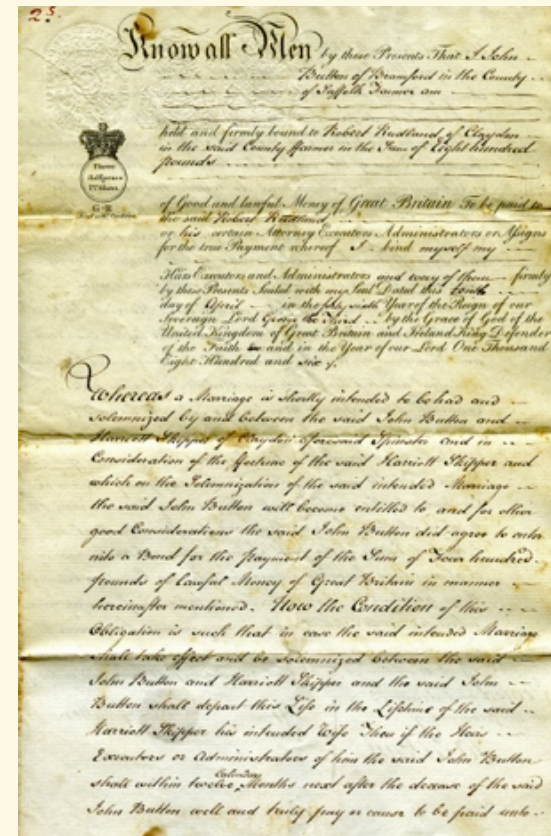 25
Know all Men by these Presents That I John
Button of Bramford in the County
of Suffolk Farmer am
held and firmly bound to Robert Rudland of Claydon
in the said County ffarmer in the Sum of Eight hundred
pounds
of Good and lawful Money of Great Britain To be paid to
the said Robert Rudland
or his certain Attorney Executors Administrators or Assigns
for the true Payment whereof I bind myself my
Heirs Executors and Administrators and every of them firmly
by these Presents Sealed with my Seal Dated this tenth
day of April in the sixth Year of the Reign of our
Sovereign Lord George the Third by the Grace of God of the
United Kingdom of Great Britain and Ireland King Defender
of the Faith and in the Year of our Lord One Thousand
Eight Hundred and six
Whereas a Marriage is shortly intended to be had and
solemnized by and between the said John Button and
Harriott Skipper of Claydon aforesaid Spinster and in
Consideration of the ffortune of the said Harriott Skipper and
which on the Solemnization of the said intended Marriage
the said John Button will become entitled to and for other
good Considerations the said John Button did agree to enter
into a Bond for the payment of the Sum of Four hundred
pounds of Lawful Money of Great Britain in manner
hereinafter mentioned. Now the Condition of this
Obligation is such that in case the said intended Marriage
shall take effect and be solemnized between the said
John Button and Harriott Skipper and the said John
Button shall depart this Life in the Lifetime of the said
Harriott Skipper his intended Wife Then if the Heirs
Executors or Administrators of him the said John Button
shall within twelve Calendar Months next after the decease of the said
John Button well and truly pay or cause to be paid unto